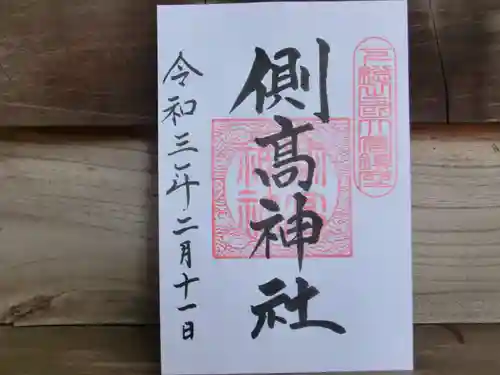 側髙神社
令和三年二月十一日